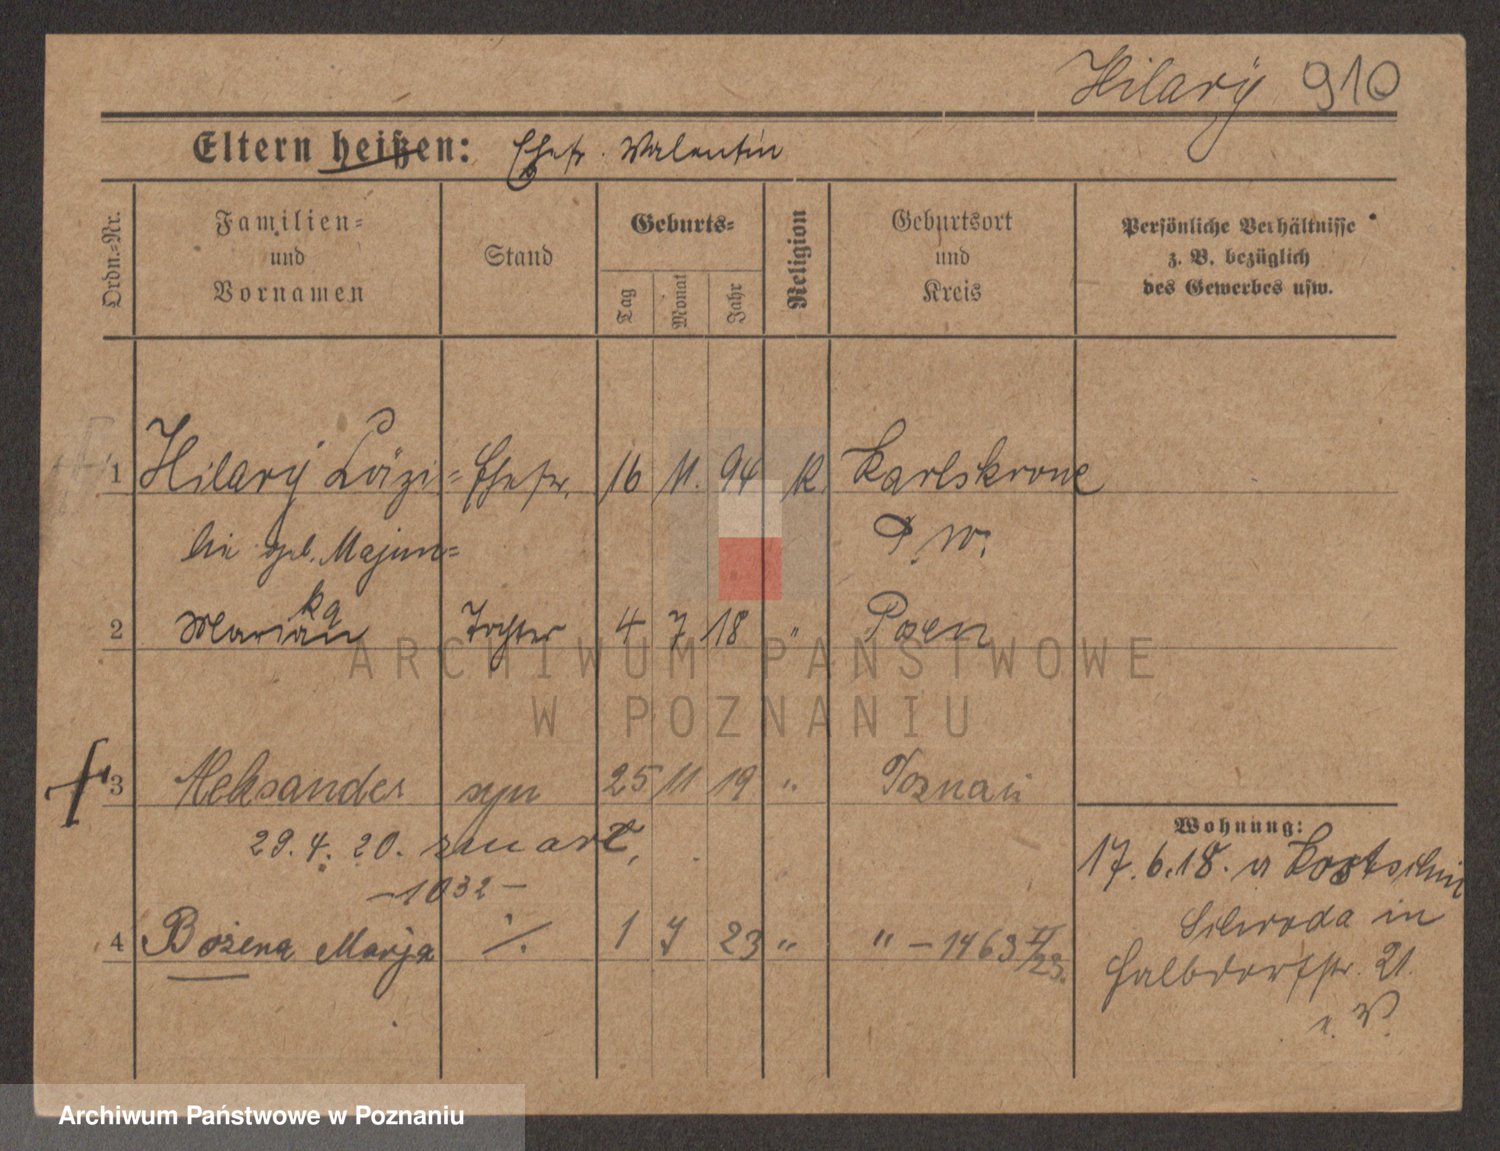 Hilary 910
Eltern heißen: Ehefr. Valentin
Ordn.-Nr.
Familien-
und
Vornamen
Stand
Geburts-
Tag
Monat
Jahr
Religion
Geburtsort
und
Kreis
Persönliche Verhältnisse
z. B. bezüglich
des Gewerbes usw.
1 Hilary Cäzi- Ehefr. 16 11. 94 k. Karlskrone
lie geb. Majun-
P. W.
ka
2 Marian Tochter 4 7 18 " Posen
ARCHIWUM PAŃSTWOWE
W POZNANIU
3 Aleksander syn 25 11 19 " Poznań
29. 4. 20. zmarł,
-1032-
4 Bożena Marja ·/. 1 7 23 " " - 1463 II/23.
Wohnung:
17.6.18. v Kostschin
Schroda in
Halbdorfstr. 21.
v. V.
Archiwum Państwowe w Poznaniu